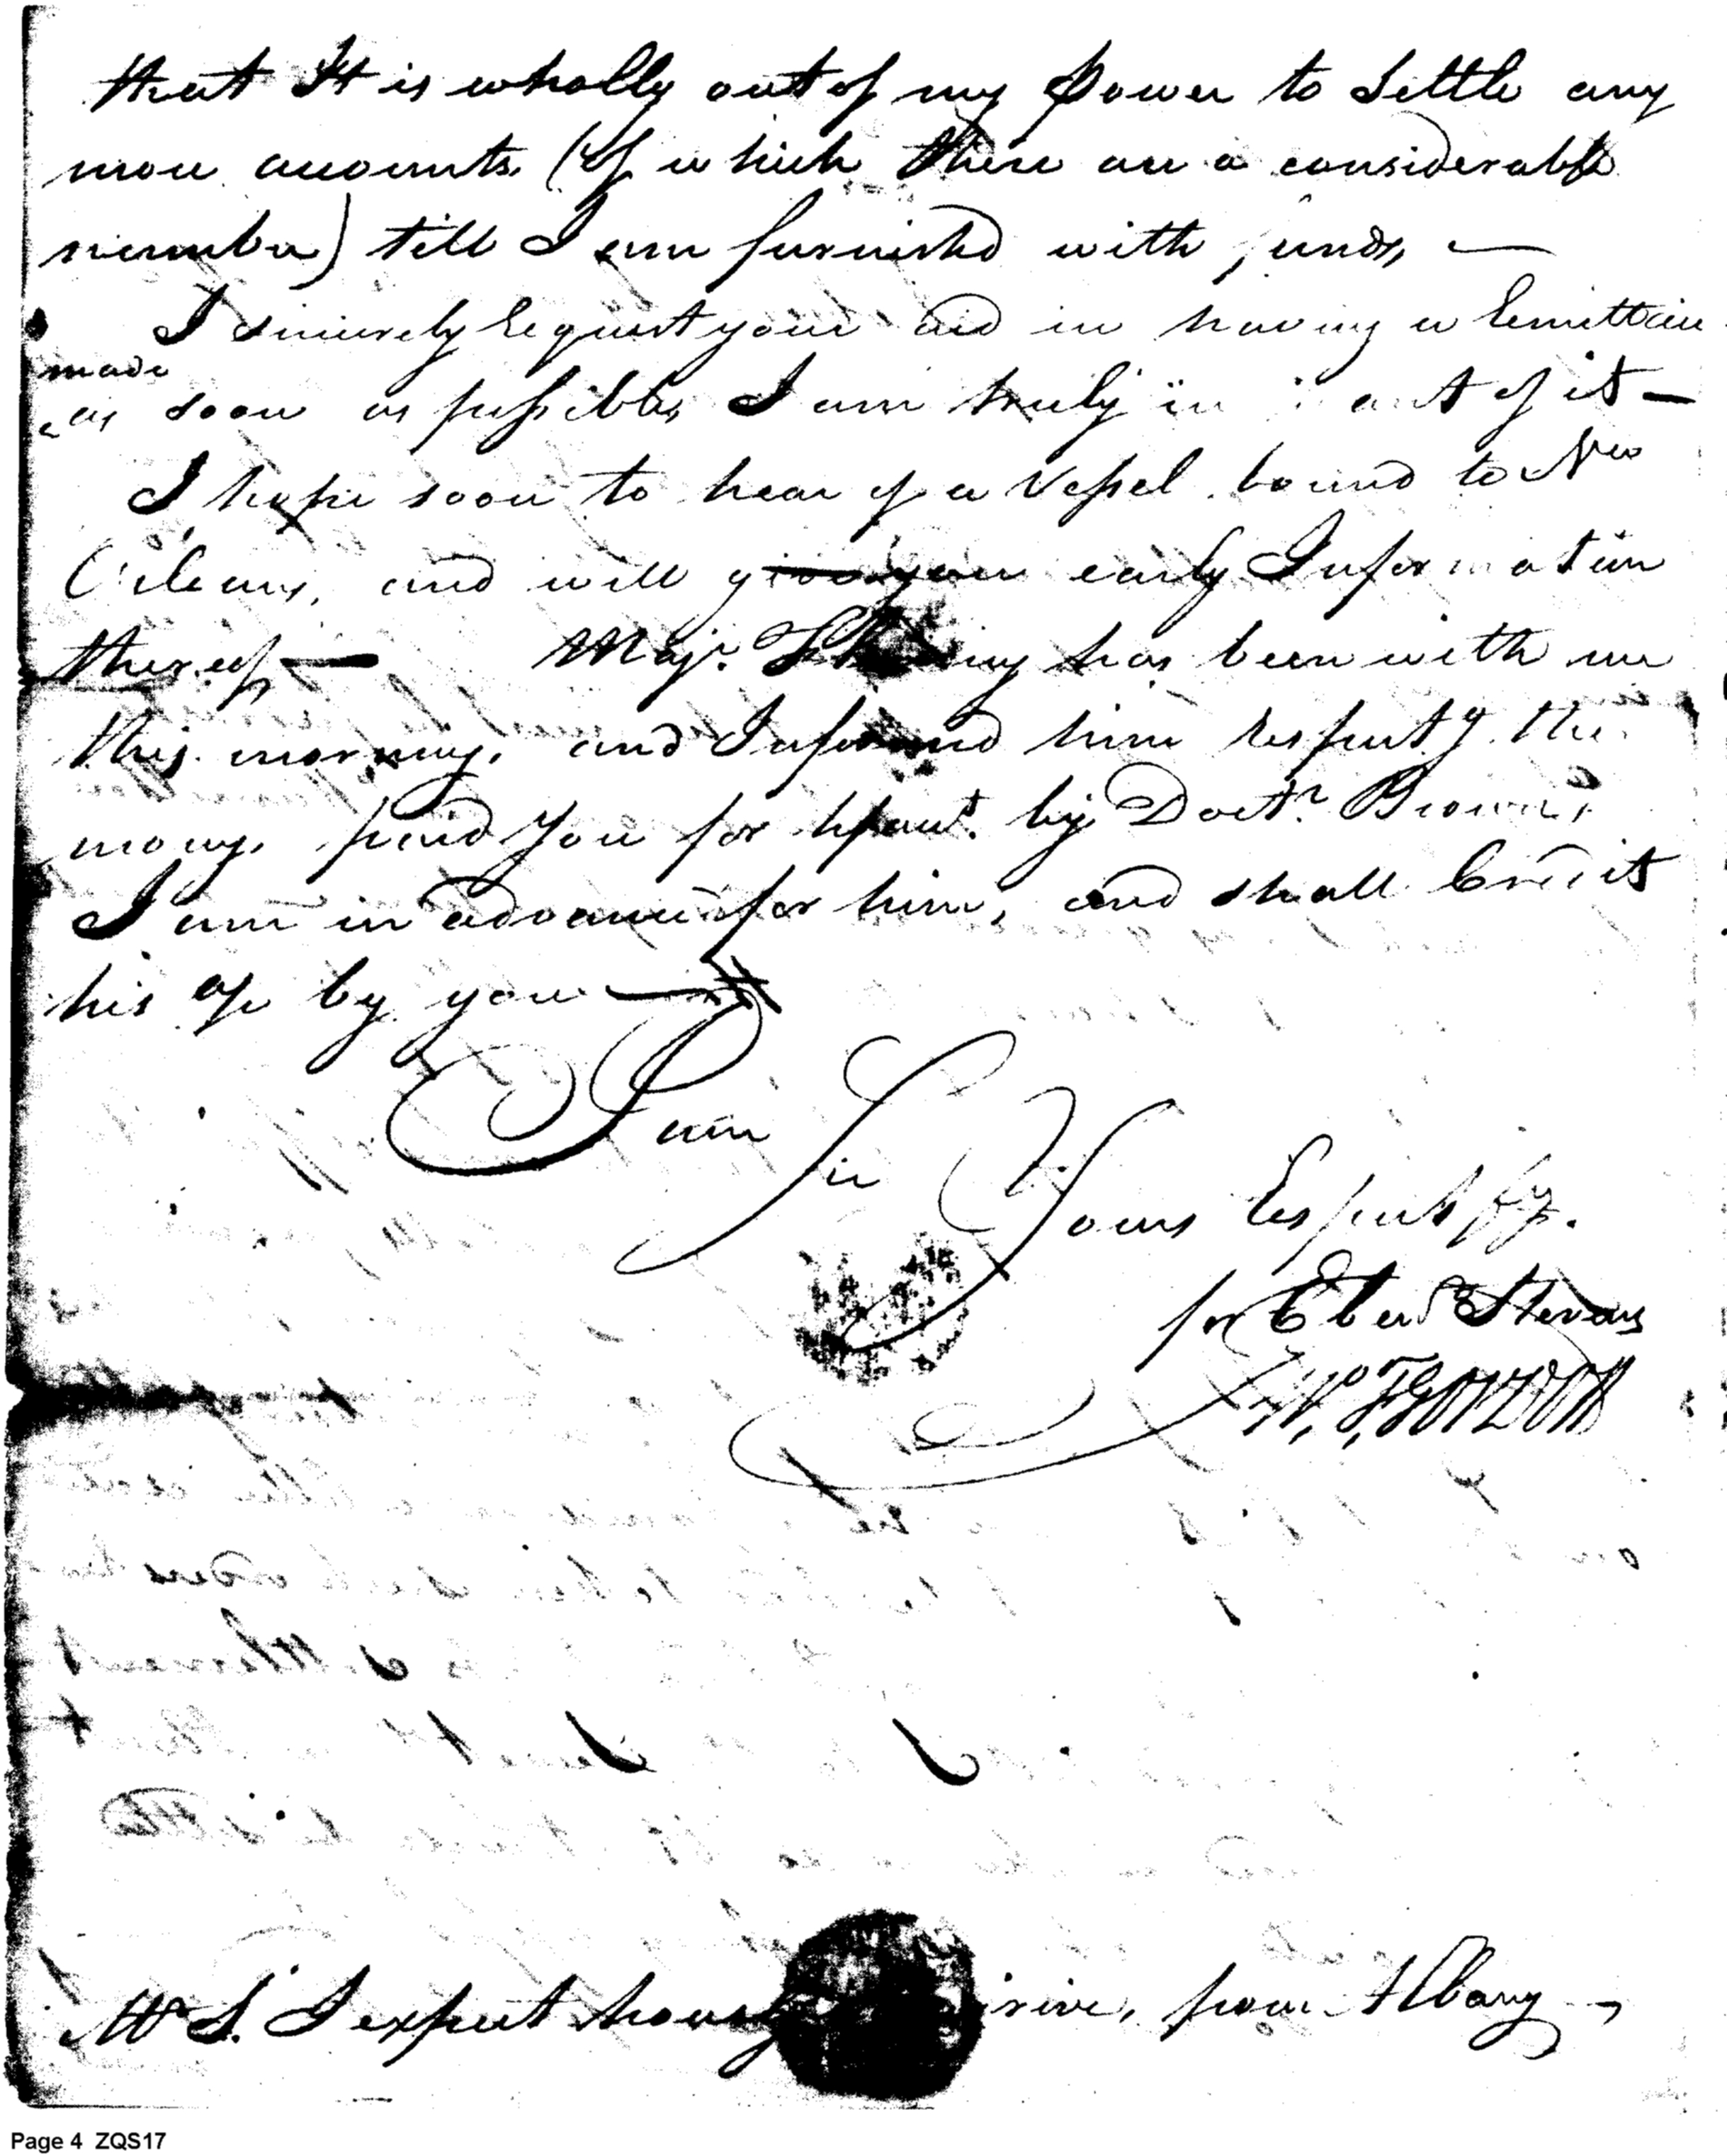 that It is wholly out of my Power to Settle any
more accounts. (of which there are a considerable
number) till I am furnished with funds, —
I sincerely Request your aid in having a Remittance
made
as soon as possible, I am truly in want of it —
I hope soon to hear of a Vessel bound to New
Orleans, and will give you early Information
thereof — Majr. has been with me
this morning, and Informed him respectg. the
money paid you for by Doctr. Brown,
I am in advance for him, and shall Credit
his a/c by you —
I am
Sir
Yours Respectfy.
for Ebenr Stevens
W. F. Gordon
Mr S. I expect hourly from Albany —
Page 4 ZQS17